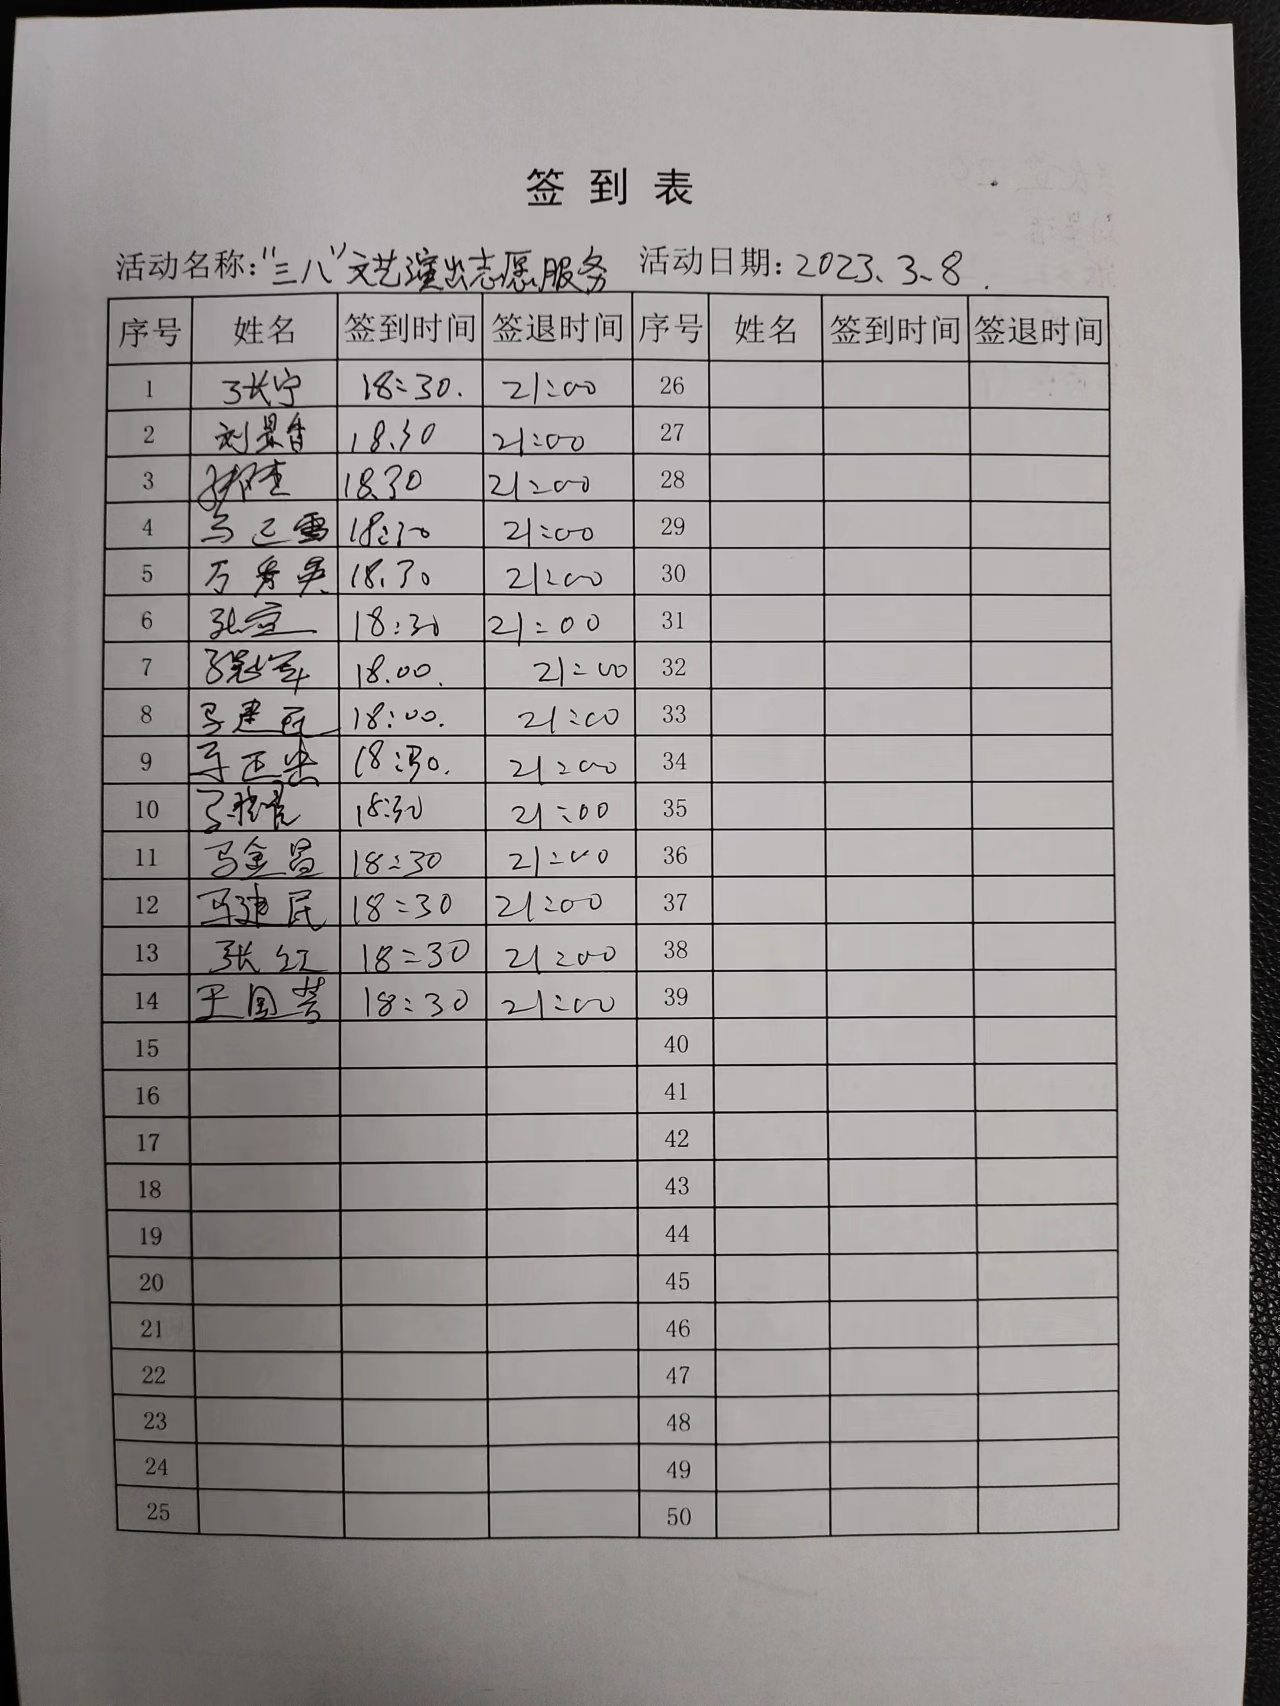 签到表
活动名称:“三八”文艺演出志愿服务 活动日期:2023.3.8.
序号 姓名 签到时间 签退时间 序号 姓名 签到时间 签退时间
1 18:30. 21:00 26
2 刘景香 18.30 21:00 27
3 18.30 21:00 28
4 18:30 21:00 29
5 万秀英 18.30 21:00 30
6 18:30 21:00 31
7 18.00. 21:00 32
8 马建 18:00. 21:00 33
9 马正忠 18:30. 21:00 34
10 18:30 21:00 35
11 马金昌 18:30 21:00 36
12 马建民 18:30 21:00 37
13 张红 18:30 21:00 38
14 王国 18:30 21:00 39
15 40
16 41
17 42
18 43
19 44
20 45
21 46
22 47
23 48
24 49
25 50